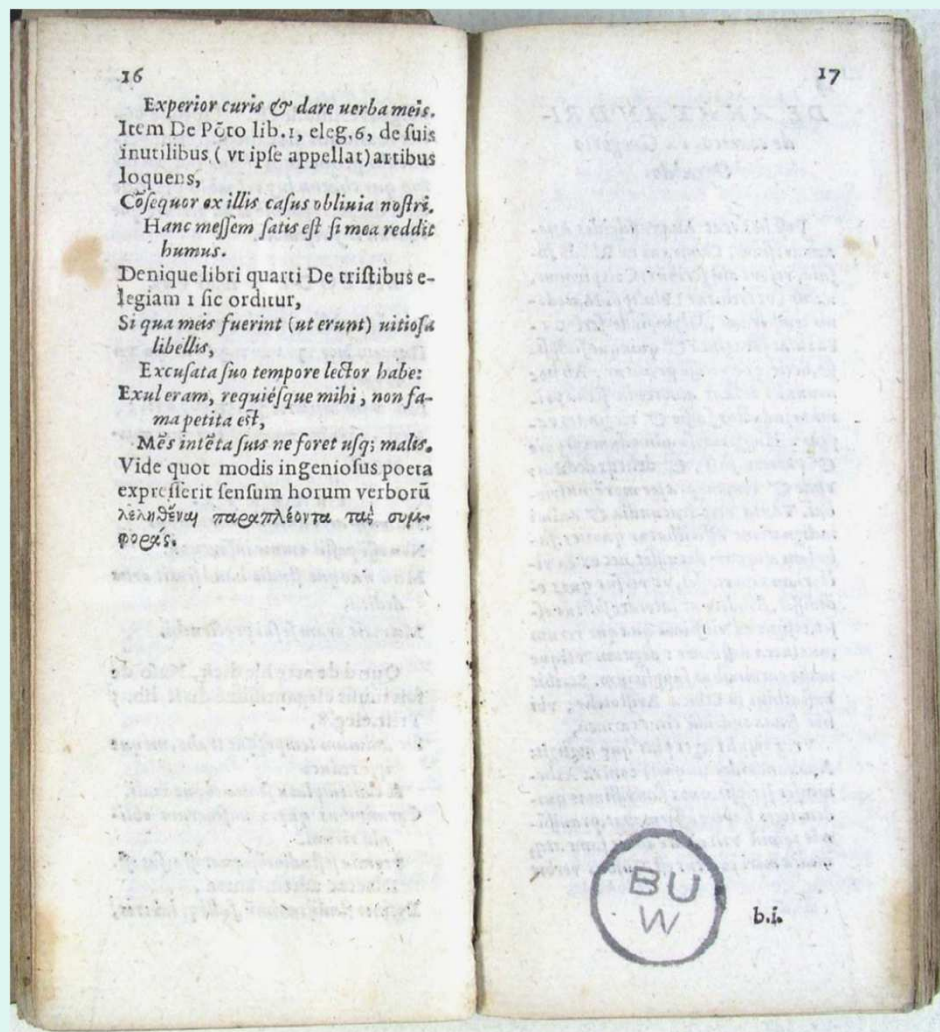 16
Experior curis & dare uerba meis.
Item De Põto lib.1, eleg.6, de suis
inutilibus ( vt ipse appellat) artibus
loquens,
Cõsequor ex illis casus obliuia nostri.
Hanc messem satis est si mea reddit
humus.
Denique libri quarti De tristibus e-
legiam 1 sic orditur,
Si qua meis fuerint (ut erunt) uitiosa
libellis,
Excusata suo tempore lector habe:
Exul eram, requiésque mihi, non fa-
ma petita est,
Mẽs intẽta suis ne foret usq; malis.
Vide quot modis ingeniosus poeta
expresserit sensum horum verborũ
λεληθέναι παραπλέοντα τὰς συμ-
φοράς.
17
BU
W
b.i.